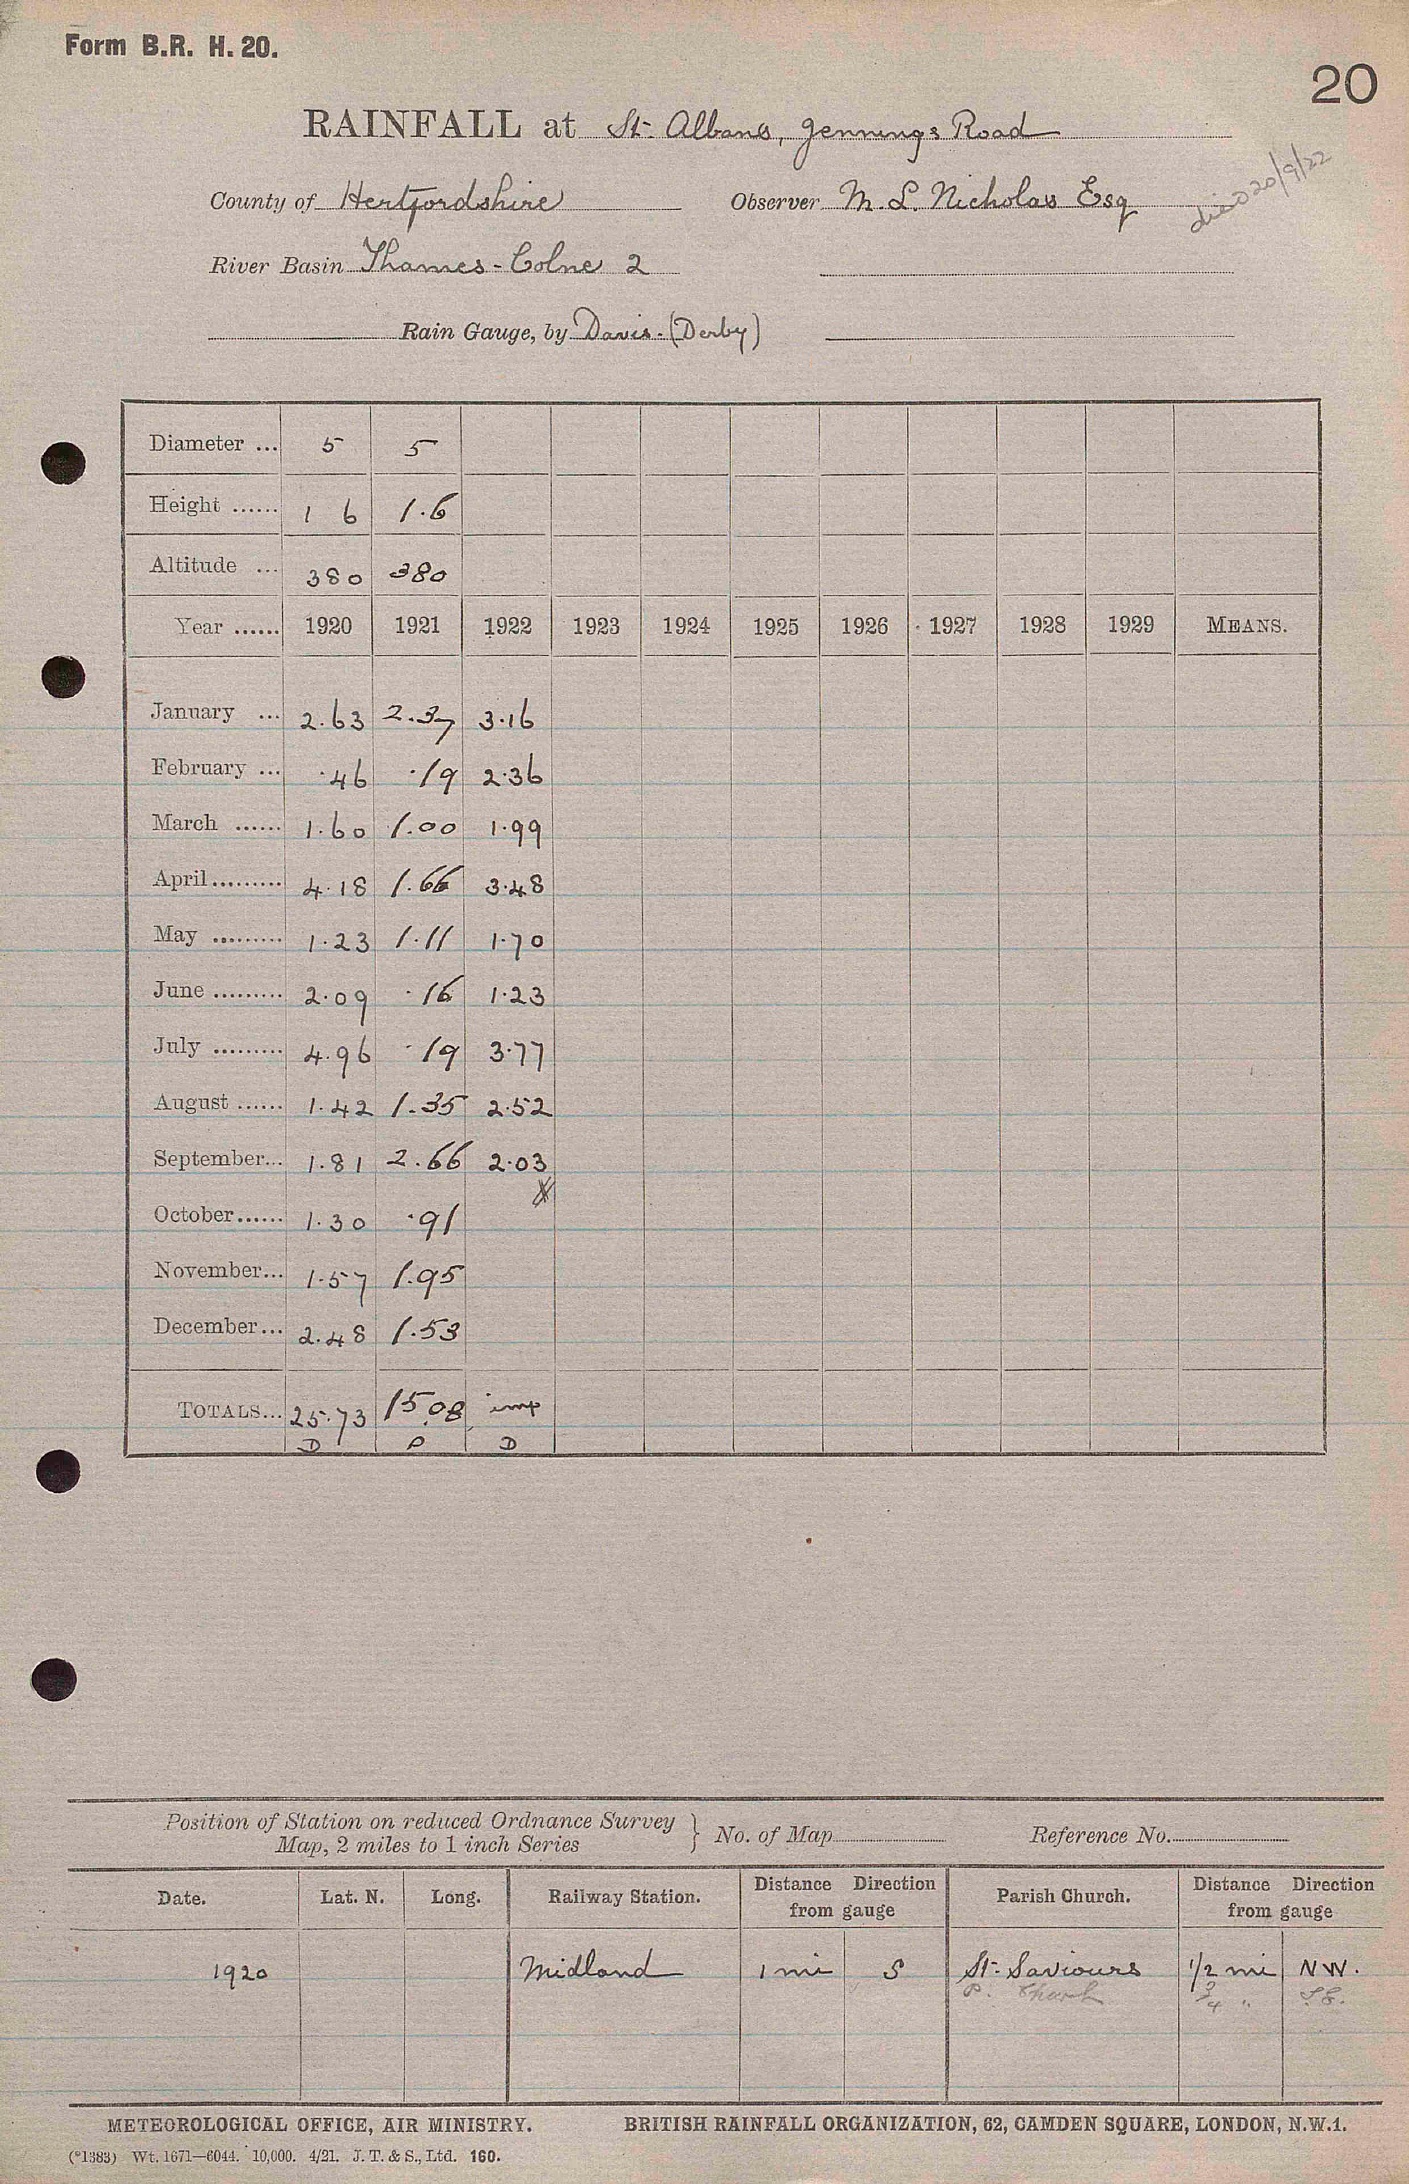 Form B.R. H. 20.
20
RAINFALL at St. Albans, Jennings Road
County of Hertfordshire Observer M. L. Nicholas Esq
20/9/22
River Basin Thames - Colne 2
Rain Gauge, by Davis. (Derby)
Diameter ... 5 5
Height ...... 1 6 1.6
Altitude ... 380 380
Year ...... 1920 1921 1922 1923 1924 1925 1926 1927 1928 1929 MEANS.
January ... 2.63 2.37 3.16
February ... .46 .19 2.36
March ...... 1.60 1.00 1.99
April......... 4.18 1.66 3.48
May ......... 1.23 1.11 1.70
June ......... 2.09 .16 1.23
July ......... 4.96 .19 3.77
August ...... 1.42 1.35 2.52
September... 1.81 2.66 2.03
October...... 1.30 .91
November... 1.57 1.95
December... 2.48 1.53
TOTALS... 25.73 15.08 imp
D P D
Position of Station on reduced Ordnance Survey
Map, 2 miles to 1 inch Series } No. of Map Reference No.
Date. Lat. N. Long. Railway Station. Distance Direction from gauge Parish Church. Distance Direction from gauge
1920 Midland 1 mi S St. Saviours 1/2 mi N W.
P. Church 3/4 " S.E.
METEOROLOGICAL OFFICE, AIR MINISTRY. BRITISH RAINFALL ORGANIZATION, 62, CAMDEN SQUARE, LONDON, N.W.1.
(*1383) Wt. 1671—6044. 10,000. 4/21. J. T. & S., Ltd. 160.